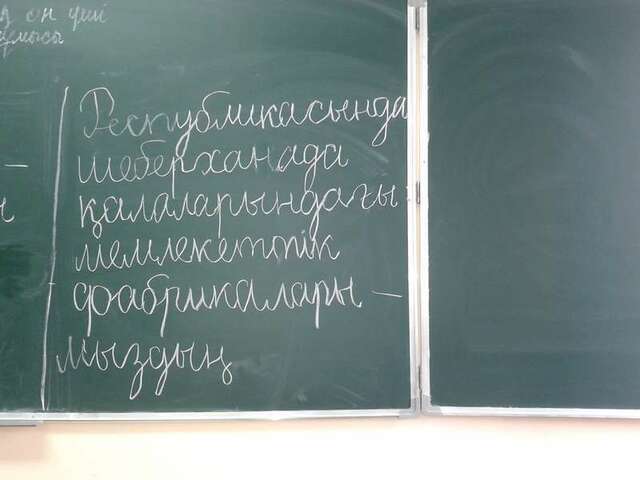 он үші
жұмысы
Республикасында
шеберханада
қалаларындағы
мемлекеттік
фабрикалары –
мыздың